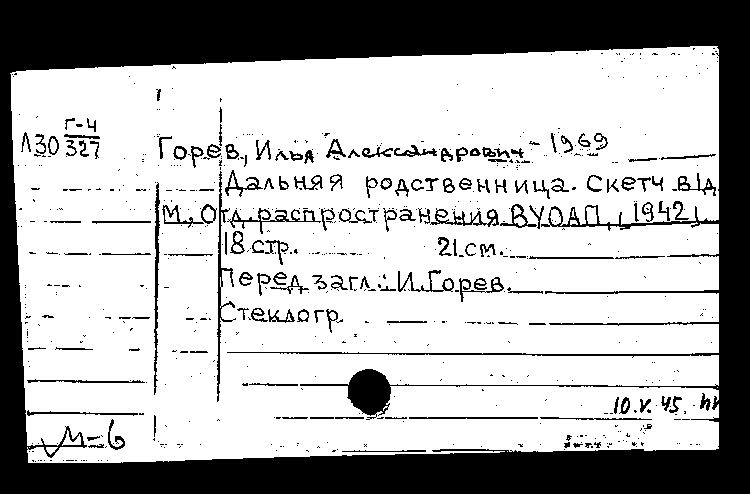 Г-4
Л30 327
Горев, Илья Александрович - 1969
Дальняя родственница. Скетч в 1 д.
М., Отд. распространения ВУОАП, [1942].
18 стр. 21 см.
Перед загл.: И. Горев.
Стеклогр.
10.V.45.
М-6